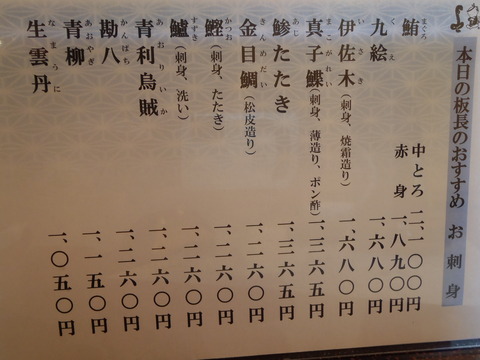 本日の板長のおすすめ お刺身
鮪 まぐろ 中とろ 二、一〇〇円
赤身 一、八九〇円
九絵 くえ 一、六八〇円
伊佐木 いさき (刺身、焼霜造り) 一、六八〇円
真子鰈 まこがれい (刺身、薄造り、ポン酢) 一、三六五円
鯵たたき あじ 一、三六五円
金目鯛 きんめだい (松皮造り) 一、二六〇円
鰹 かつお (刺身、たたき) 一、二六〇円
鱸 すずき (刺身、洗い) 一、二六〇円
青利烏賊 あおりいか 一、二六〇円
勘八 かんぱち 一、二六〇円
青柳 あおやぎ 一、一五〇円
生雲丹 なまうに 一、〇五〇円